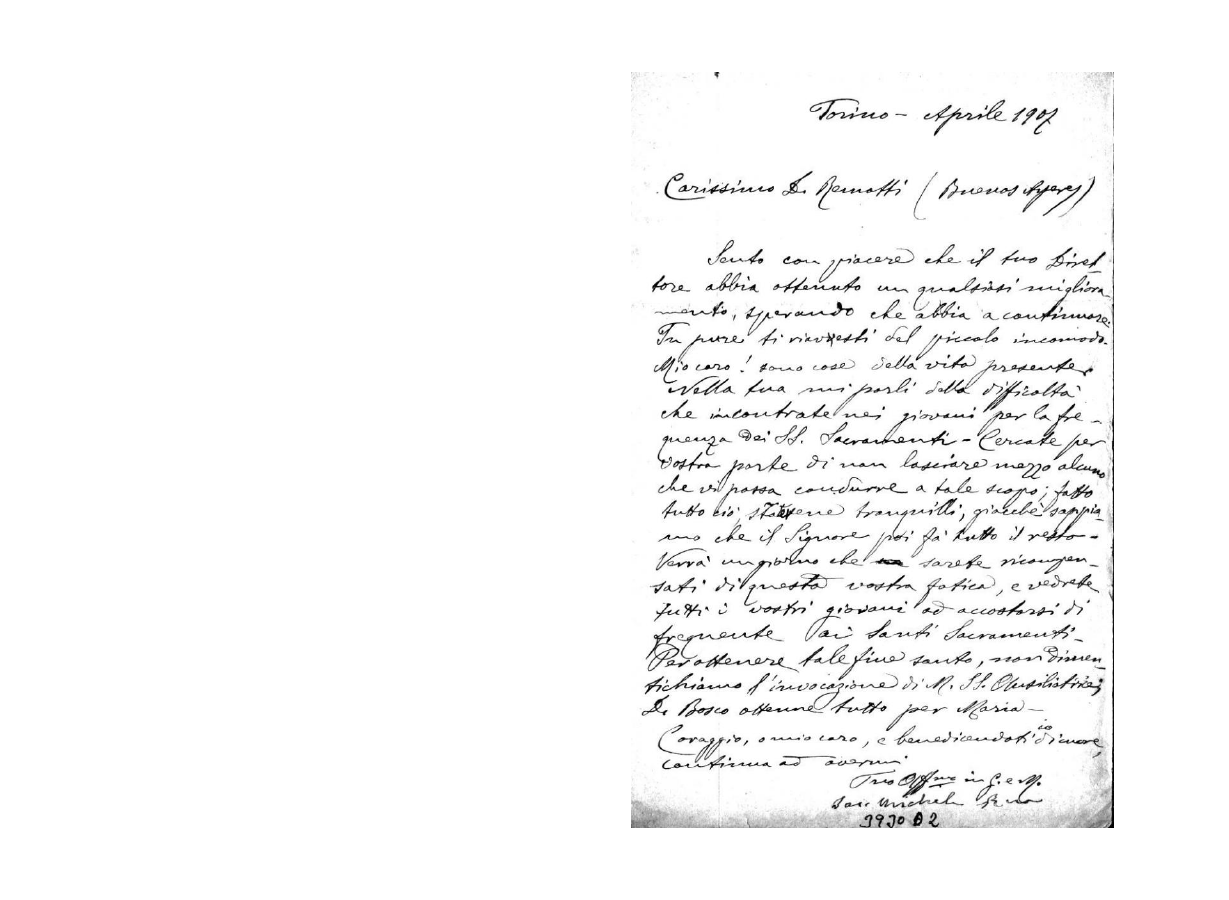 Torino - Aprile 1907
Carissimo D. Remotti (Buenos Ayres)
Sento con piacere che il tuo Diret-
tore abbia ottenuto un qualsiasi migliora-
mento, sperando che abbia a continuare.
Tu pure ti riavesti del piccolo incomodo.
Mio caro! sono cose della vita presente.
Nella tua mi parli della difficoltà
che incontrate nei giovani per la fre-
quenza dei SS. Sacramenti - Cercate per
vostra parte di non lasciare mezzo alcuno
che vi possa condurre a tale scopo; fatto
tutto ciò, tranquilli, giacchè sappia-
mo che il Signore poi fa tutto il resto -
Verrà un giorno che sarete ricompen-
sati di questa vostra fatica, e vedrete
tutti i vostri giovani ad accostarsi di
frequente ai Santi Sacramenti -
Per ottenere tale fine santo, non dimen-
tichiamo l'invocazione di M. SS. Ausiliatrice;
D. Bosco ottenne tutto per Maria -
Coraggio, o mio caro, e benedicendoti io di cuore,
continua ad avermi
Tuo Aff.mo in G. e M.
Sac. Michele Rua
3930 B 2